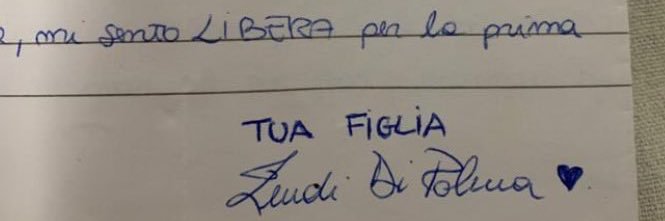 , mi sento LIBERA per la prima
TUA FIGLIA
Zendi Di Palma